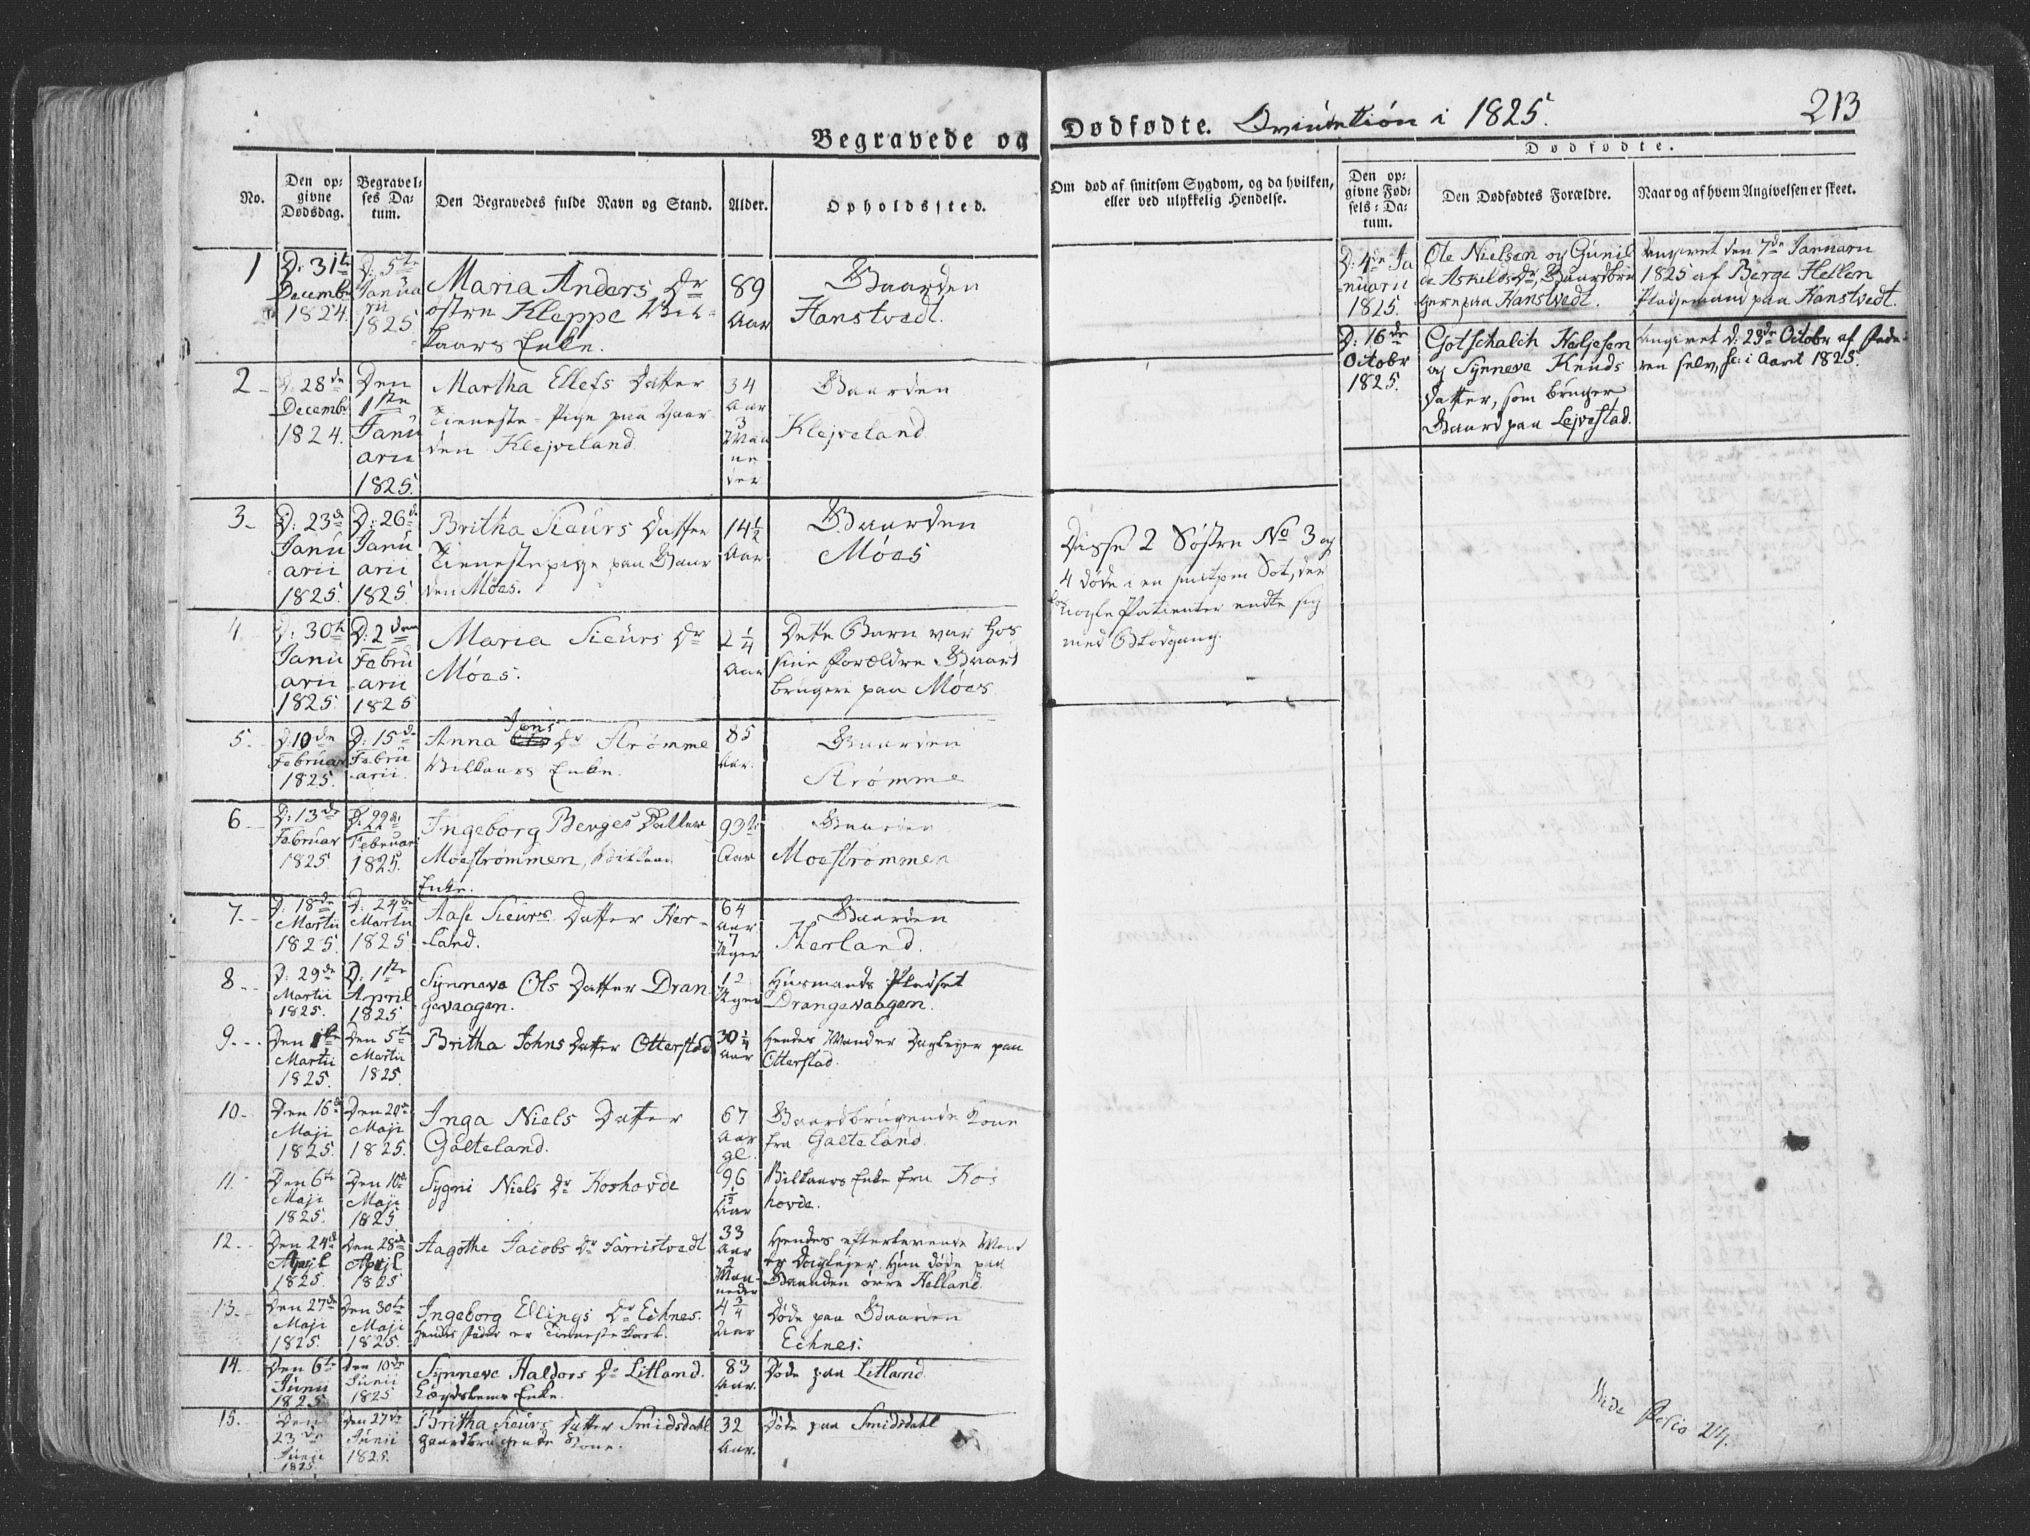 Begravede og Dødfødte. Qvindekiön i 1825. 213
No.
Den op-
givne
Dødsdag.
Begravel-
ses Da-
tum.
Den Begravedes fulde Navn og Stand.
Alder.
Opholdssted.
Om død af smitsom Sygdom, og da hvilken,
eller ved ulykkelig Hendelse.
Dødfødte.
Den op-
givne Fød-
sels-Da-
tum.
Den Dødfødtes Forældre.
Naar og af hvem Angivelsen er skeet.
1
D: 31te
Decembr
1824.
D: 5te
Janua
rii
1825
Maria Anders Dr
østre Kleppe Vil-
kaars Enke.
89
Aar
Gaarden
Hanstvedt.
2
D: 28de
Decembr
1824.
Den
1ste
Janu
arii
1825.
Martha Ellefs Datter
Tieneste-Pige paa Gaar
den Klejveland
34
Aar
3
Maa
ne
der
Gaarden
Klejveland
3
D: 23de
Janu
arii
1825.
D: 26de
Janu
arii
1825.
Britha Siours Datter
Tienestepige paa Gaar
den Moes.
14 1/2
Aar
Gaarden
Møes
Disse 2 Søstre No 3 og
4 døde i en smitsom Sot, der
for nogle Patienter endte sig
med Blodgang.
4
D: 30te
Janu
arii
1825
D: 2den
Febru
arii
1825
Maria Siours Dr
Møes.
2 1/4
Aar
Dette Barn var hos
sine Forældre Gaard
brugere paa Møes.
5
D: 10de
Februar
1825.
D: 15de
Febru
arii.
Anna Jens Dr Strømme
Vilkaars Enke.
85
Aar.
Gaarden
Strømme
6
D: 13de
Februar
1825
D: 22de
Februari
1825.
Ingeborg Berges Datter
Moestrømmen, Vilkaars
Enke.
93
Aar
Gaarden
Moestrømmen
7
D: 18de
Martii
1825.
D: 24de
Martii
1825
Aase Siours Datter Her-
land.
64
Aar
7
Uger
Gaarden
Herland.
8
D: 29de
Martii
1825.
D: 1ste
April
1825
Synneva Ols Datter Dran
gevaagen.
12
Uger
Husmands Pladset
Drangevaagen.
9
Den 1ste
Martii
1825.
Den 5te
Martii
1825.
Britha Johns Datter Otterstad
30 1/4
Aar
Hendes Mand er Daglejer paa
Otterstad.
10
Den 16de
Maji
1825.
Den 20de
Maji
1825.
Inga Niels Datter
Gaeteland.
67
Aar
gl.
Gaardbrugende Kone
fra Gaeteland.
11
Den 6te
Maji
1825.
Den 10de
Maji
1825
Sygni Niels Dr Koshovde
96
1/2
Aar
Vilkaars Enke fra Kos
hovde.
12
Den 24de
April
1825
Den 28de
April
1825
Aagothe Jacobs Dr Farristvedt
33
Aar
2
Maa-
neder
Hendes efterlevende Mand
er Daglejer. Hun døde paa
Gaarden øvre Helland
13
Den 27de
Maji
1825.
Den 30te
Maji
1825.
Ingeborg Ellings Dr Echnes.
hendes Fader er Tieneste Karl.
4 3/4
Aar
Døde paa Gaarden
Echnes:
14
Den 6te
Junii
1825
Den 10de
Junii
1825
Synneve Haldors Dr Litland.
Lægdslems Enke.
83
Aar.
Døde paa Litland
15.
Den
23de
Junii
1825.
Den 27de
Junii
1825.
Britha Siours Datter Smidsdahl
gaardbrugende Kone.
32
Aar.
Døde paa Smidsdahl
D: 4de Ja
nuarii
1825.
Ole Nielsen og Gunil
de Askilds Dr, Gaardbru
gere paa Hanstvedt.
Angivet den 7de Januarii
1825 af Berge Hellen
Pladsemand paa Hanstvedt.
D: 16de
Octobr
1825.
Gotschalch Heljesen
og Synneve Knuds
Datter, som bruger
Gaard paa Lejvestad.
Angivet d: 23de Octobr af Fade-
ren selv, sc: i Aaret 1825.
Vide Folio 214.